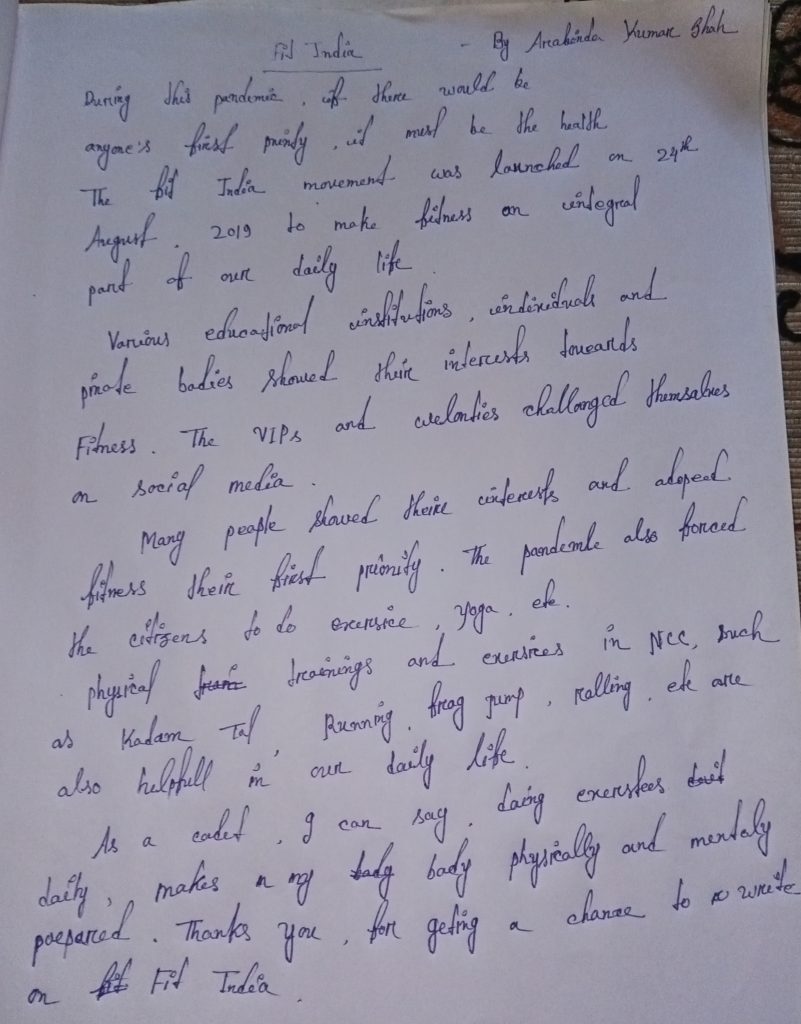 Fit India - By Arabinda Kumar Shah
During this pandemic, if there would be
anyone's first priority, it must be the health
The fit India movement was launched on 24th
August, 2019 to make fitness an integral
part of our daily life.
Various educational institutions, individuals and
private bodies showed their interests towards
Fitness. The VIPs and challanged themselves
on social media.
Many people showed their interests and adopted
fitness their first priority. The pandemic also forced
the citizens to do exersice, yoga, etc.
physical trainings and exersices in NCC, such
as Kadam Tal, Running, frog jump, rolling, etc are
also helpfull in our daily life.
As a cadet, I can say, doing exersices
daily, makes my body physically and mentaly
prepared. Thanks you, for geting a chance to write
on Fit India.